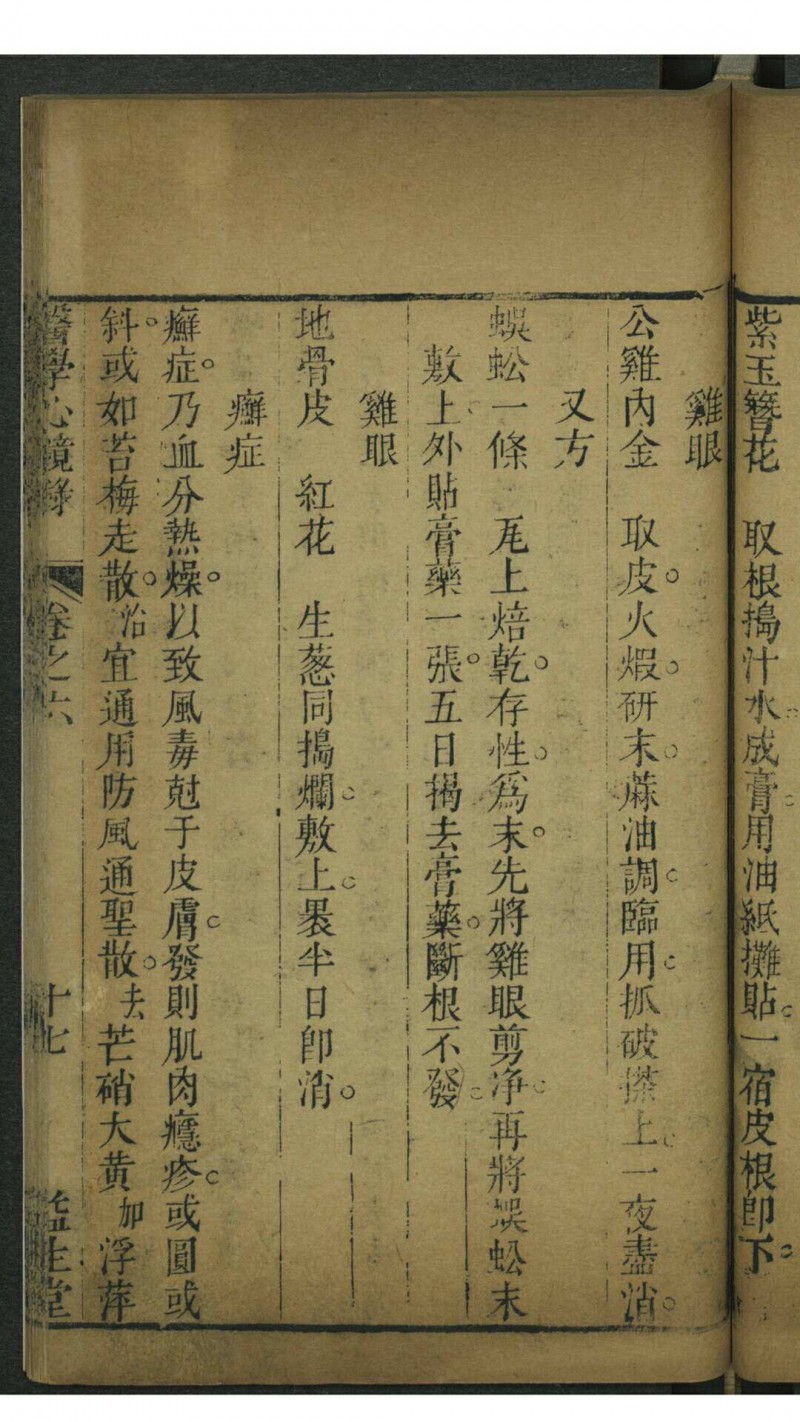 紫玉簪花　取根搗汁水成膏用油紙攤貼一宿皮根卽下
雞眼
公雞內金　取皮火煆研末蔴油調臨用抓破搽上一夜盡消
又方
蜈蚣一條　瓦上焙乾存性為末先將雞眼剪净再將蜈蚣末
敷上外貼膏藥一張五日揭去膏藥斷根不發
雞眼
地骨皮　紅花　生葱同搗爛敷上褁半日卽消
癬症
癬症乃血分熱燥以致風毒尅于皮膚發則肌肉癮疹或圓或
斜或如苔梅走散治宜通用防風通聖散去芒硝大黃加浮萍
醫學心鏡錄　卷之六　十七　生堂